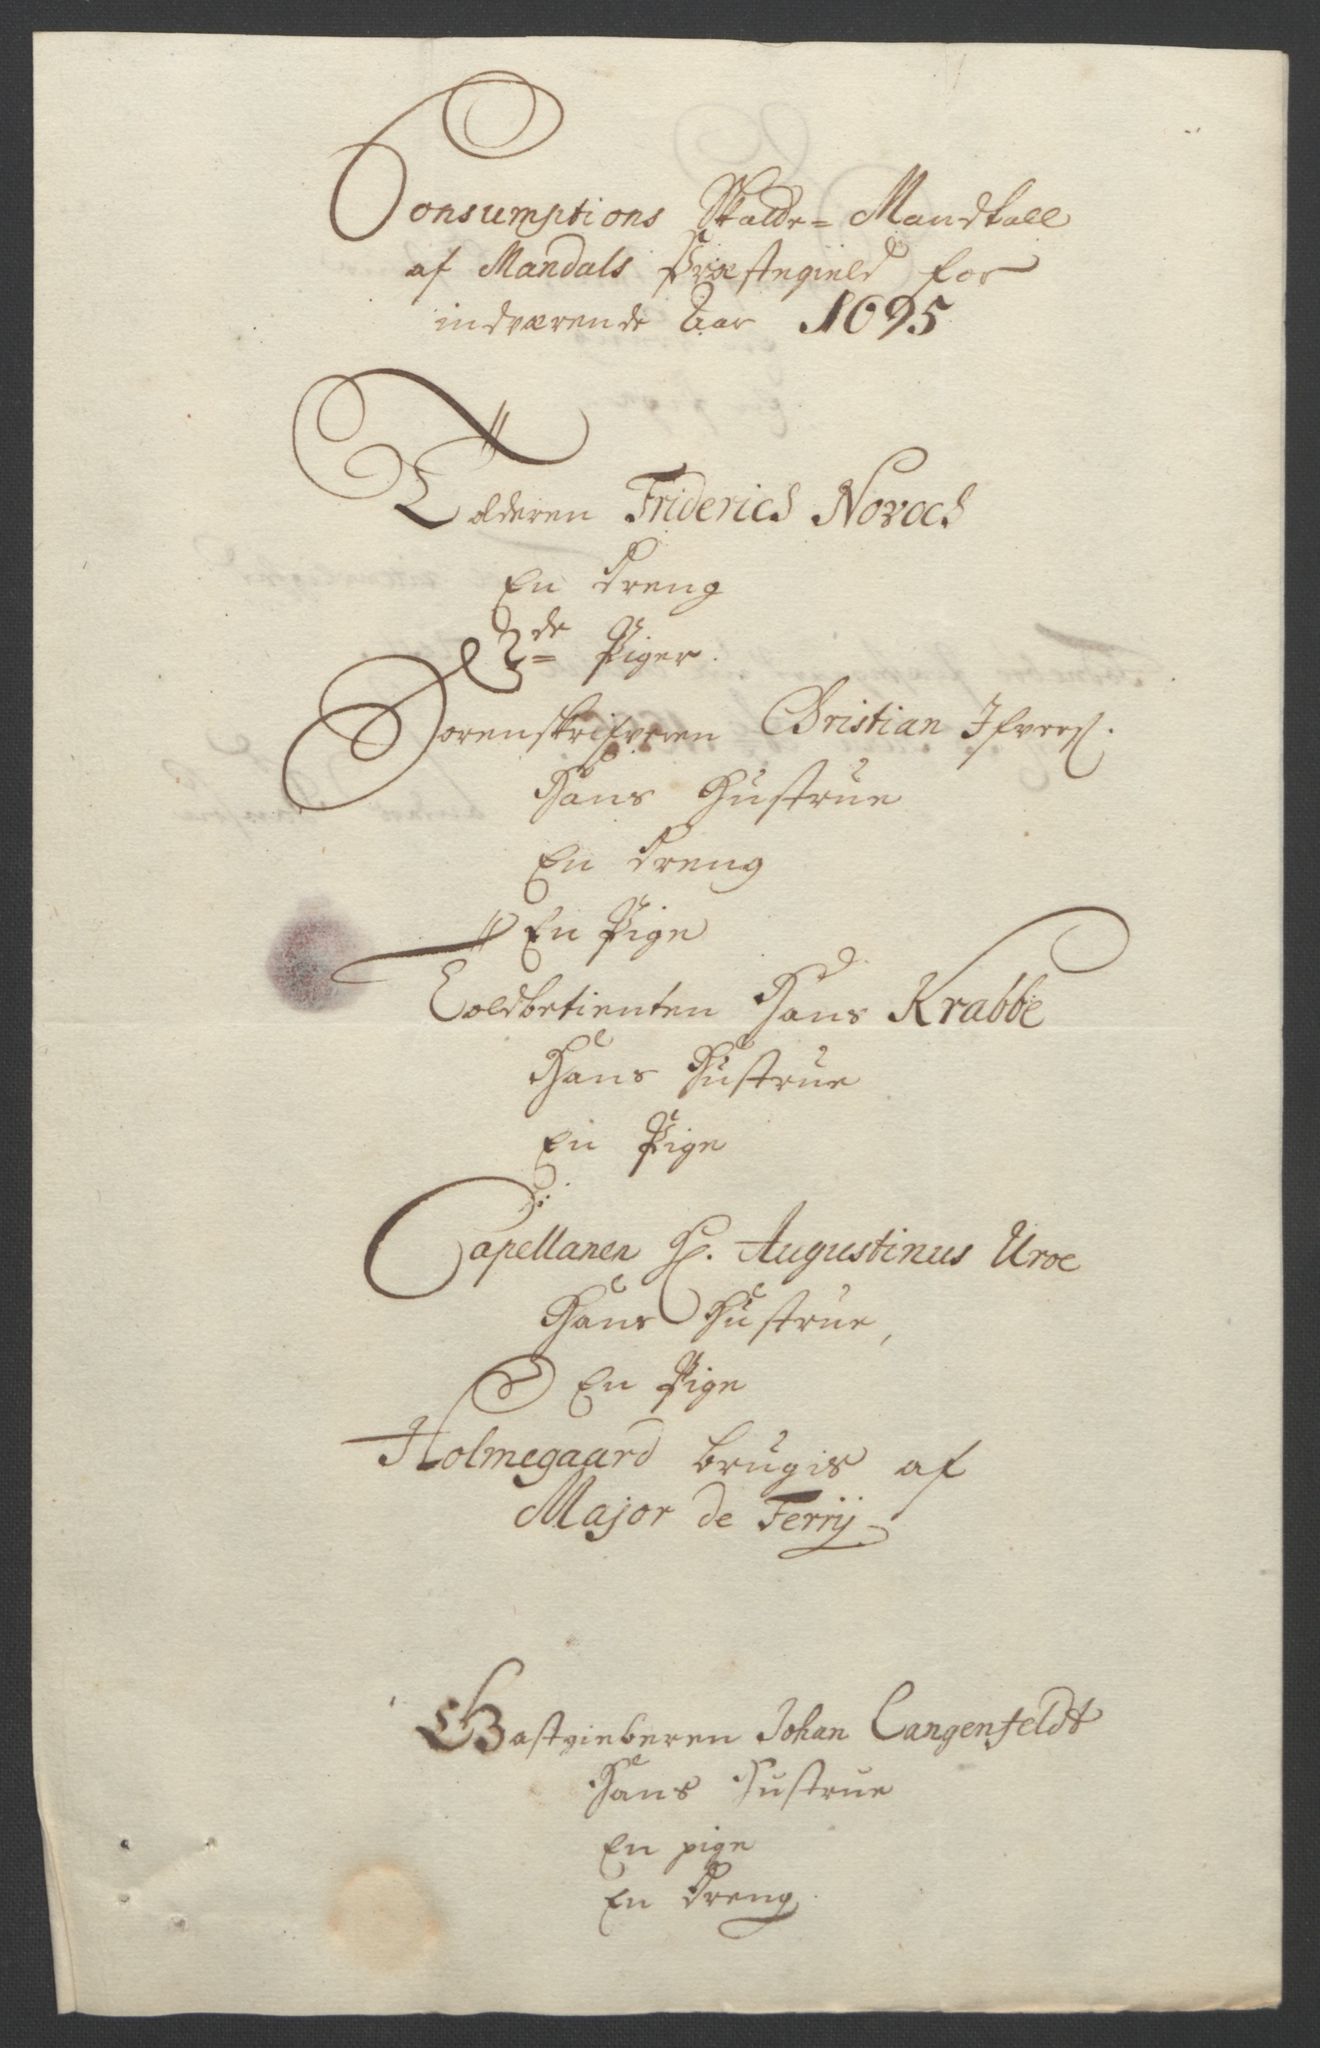 Consumptions Skatte= Mandtall
af Mandals Præstegield for
indværende Aar 1695
Tolderen Friderich Novoch
En Dreng
2de Piger.
Sorenskrifveren Christian Ifvers.
Hans Hustrue
En Dreng
En Pige
Toldbetienten Hans Krabbe
Hans Hustrue
En Pige
Capellanen H. Augustinus Uroe
Hans Hustrue,
En Pige
Holmegaard brugis af
Major de Ferrij
Gastgieberen Johan Langenfeldt
Hans Hustrue
En pige
En Dreng.